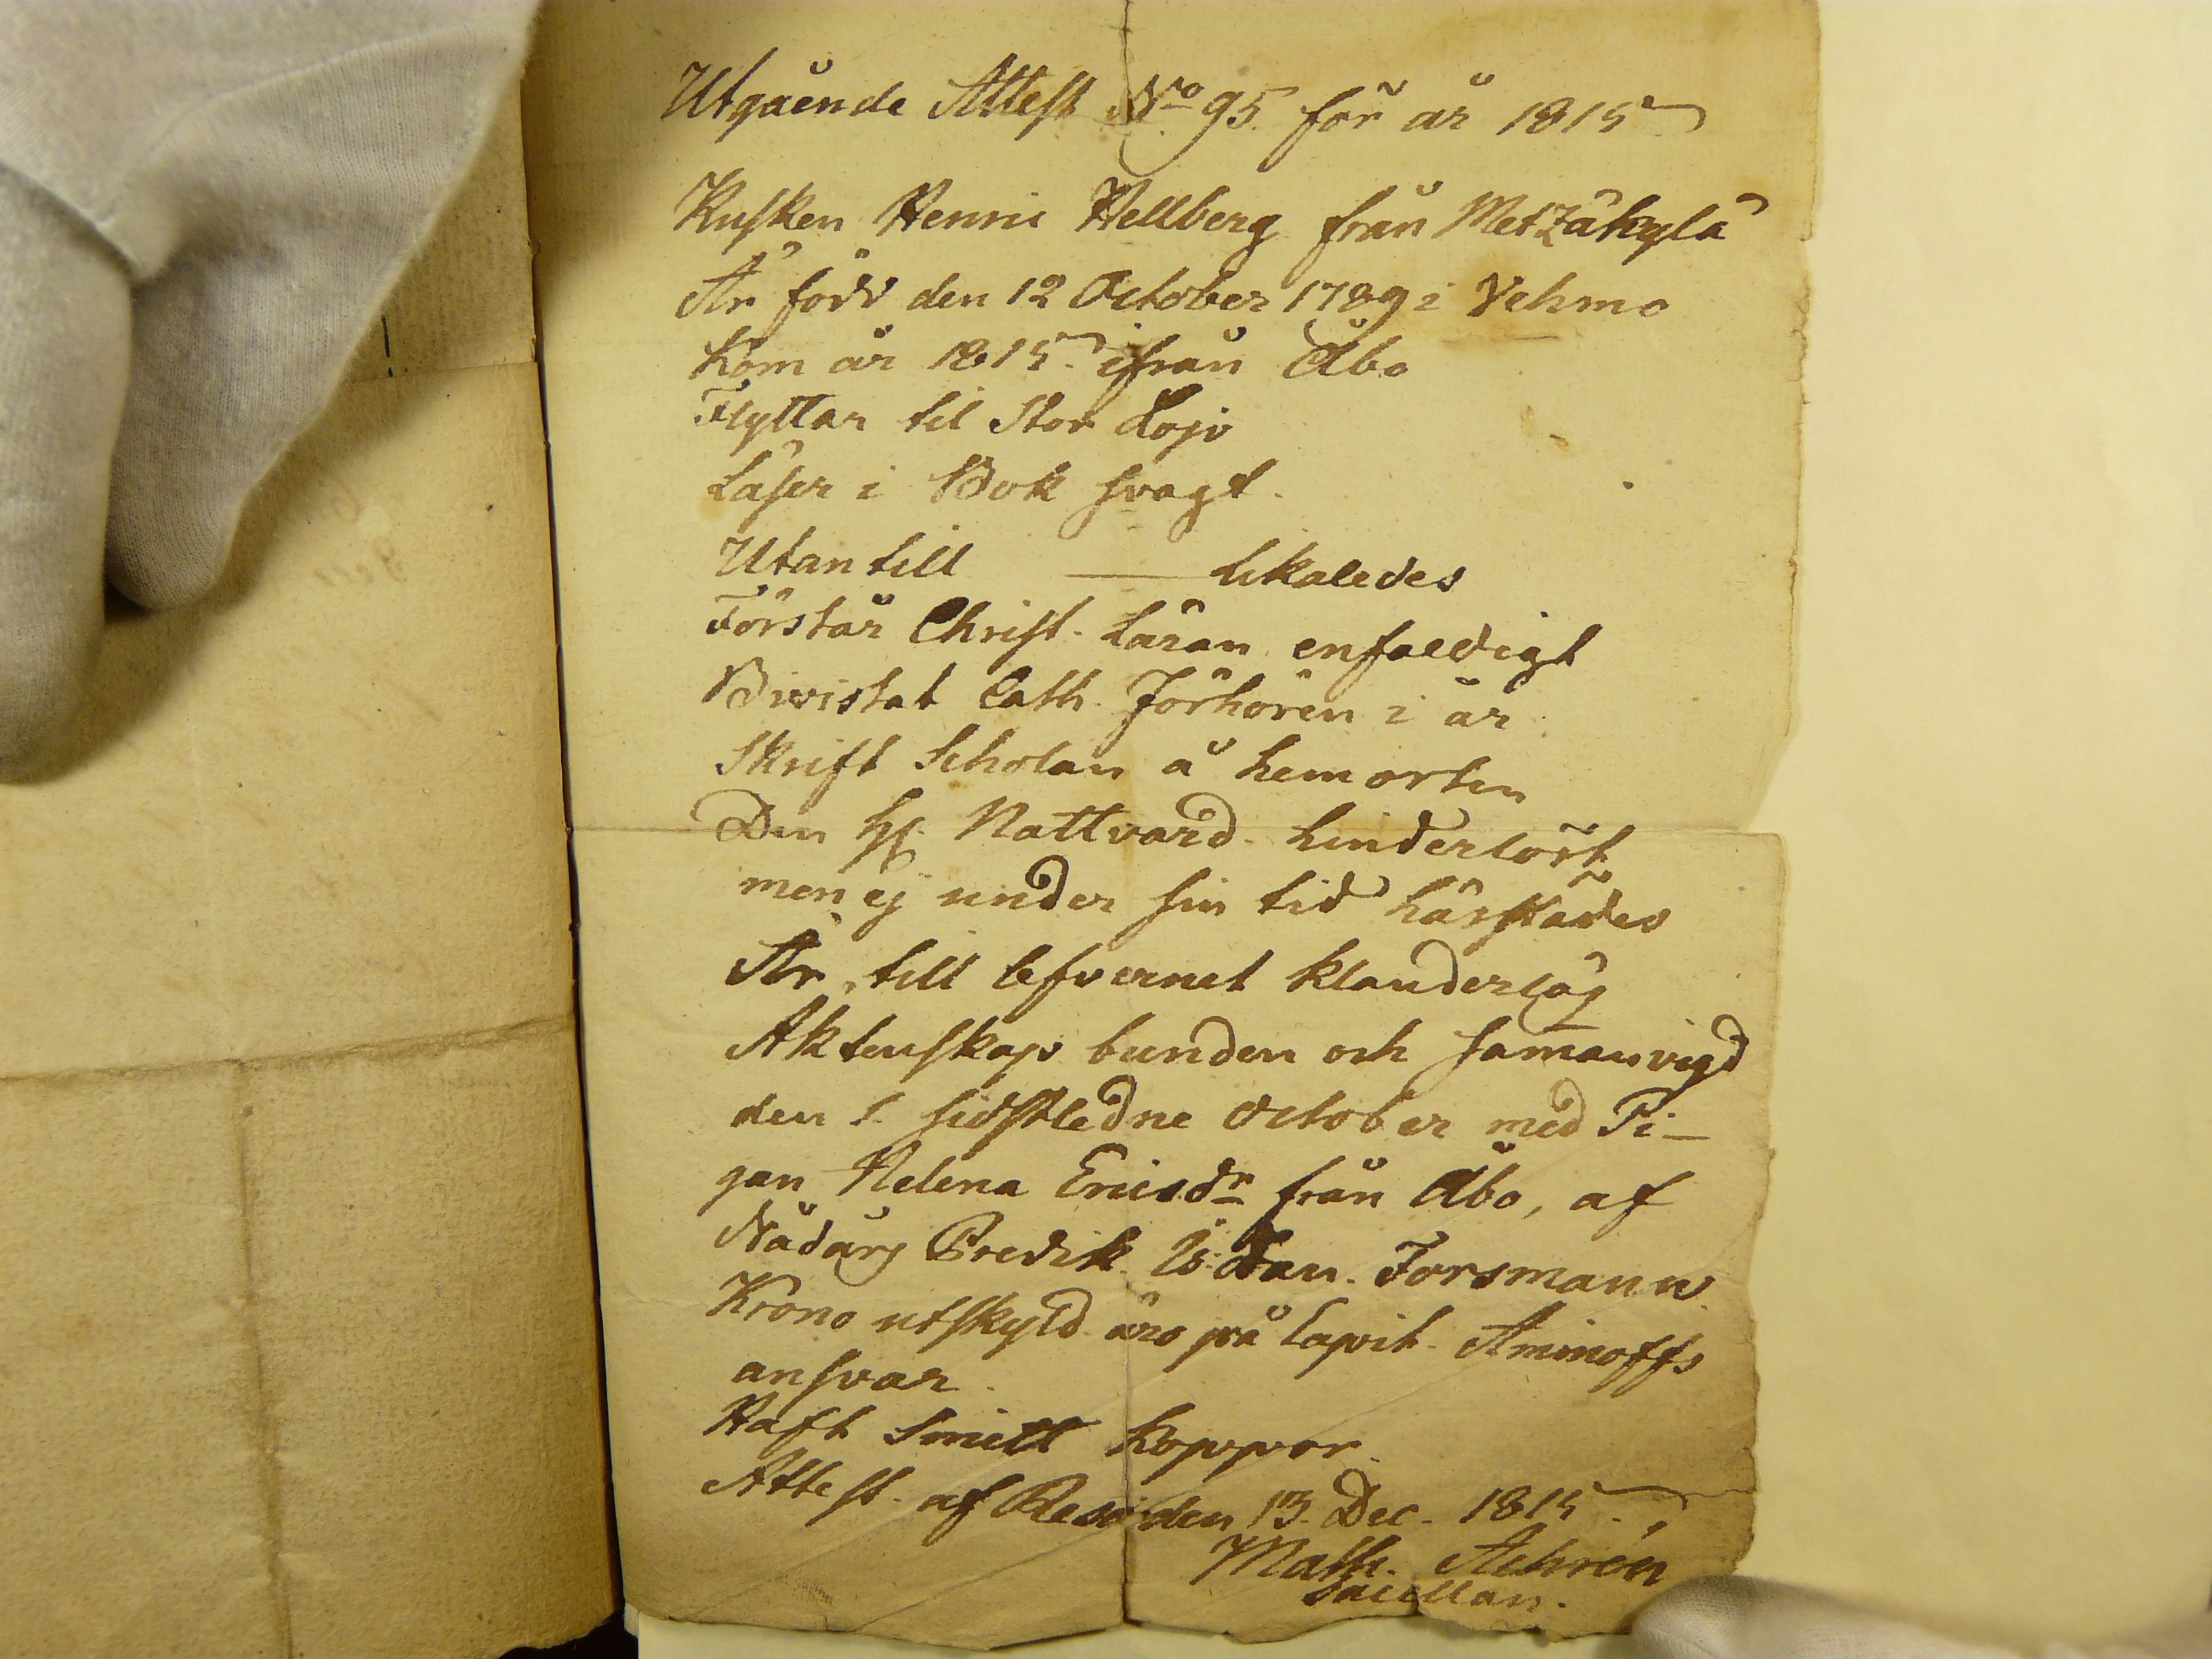 Utgående Attest No 95 för år 1815
Kusken Henric Hellberg från Metzäkylä
Är född den 12 October 1789 i Vehmo
kom år 1815 ifrån Åbo
Flyttar til Stor Lojo
Läser i Bok svagt.
Utantill — likaledes
Förstår Christ. Läran enfaldigt
Bivistat Cath. Förhören i år
Skrift Scholan å hemorten
Den H. Nattvard. hinderlöst
men ej under sin tid härstädes
Är till lefvernet klanderlös
Aktenskaps bunden och samanvigd
den 1. sidstledne October med Pi-
gan Helena Ericsdr från Åbo, af
Nådårs Predik. Dan. Forsmann
Krono utskyld. äro på Capit. Aminoffs
ansvar.
Haft Smitt koppor.
Attest. af Resö den 13. Dec. 1815.
Math. Achrén
Sacellan.